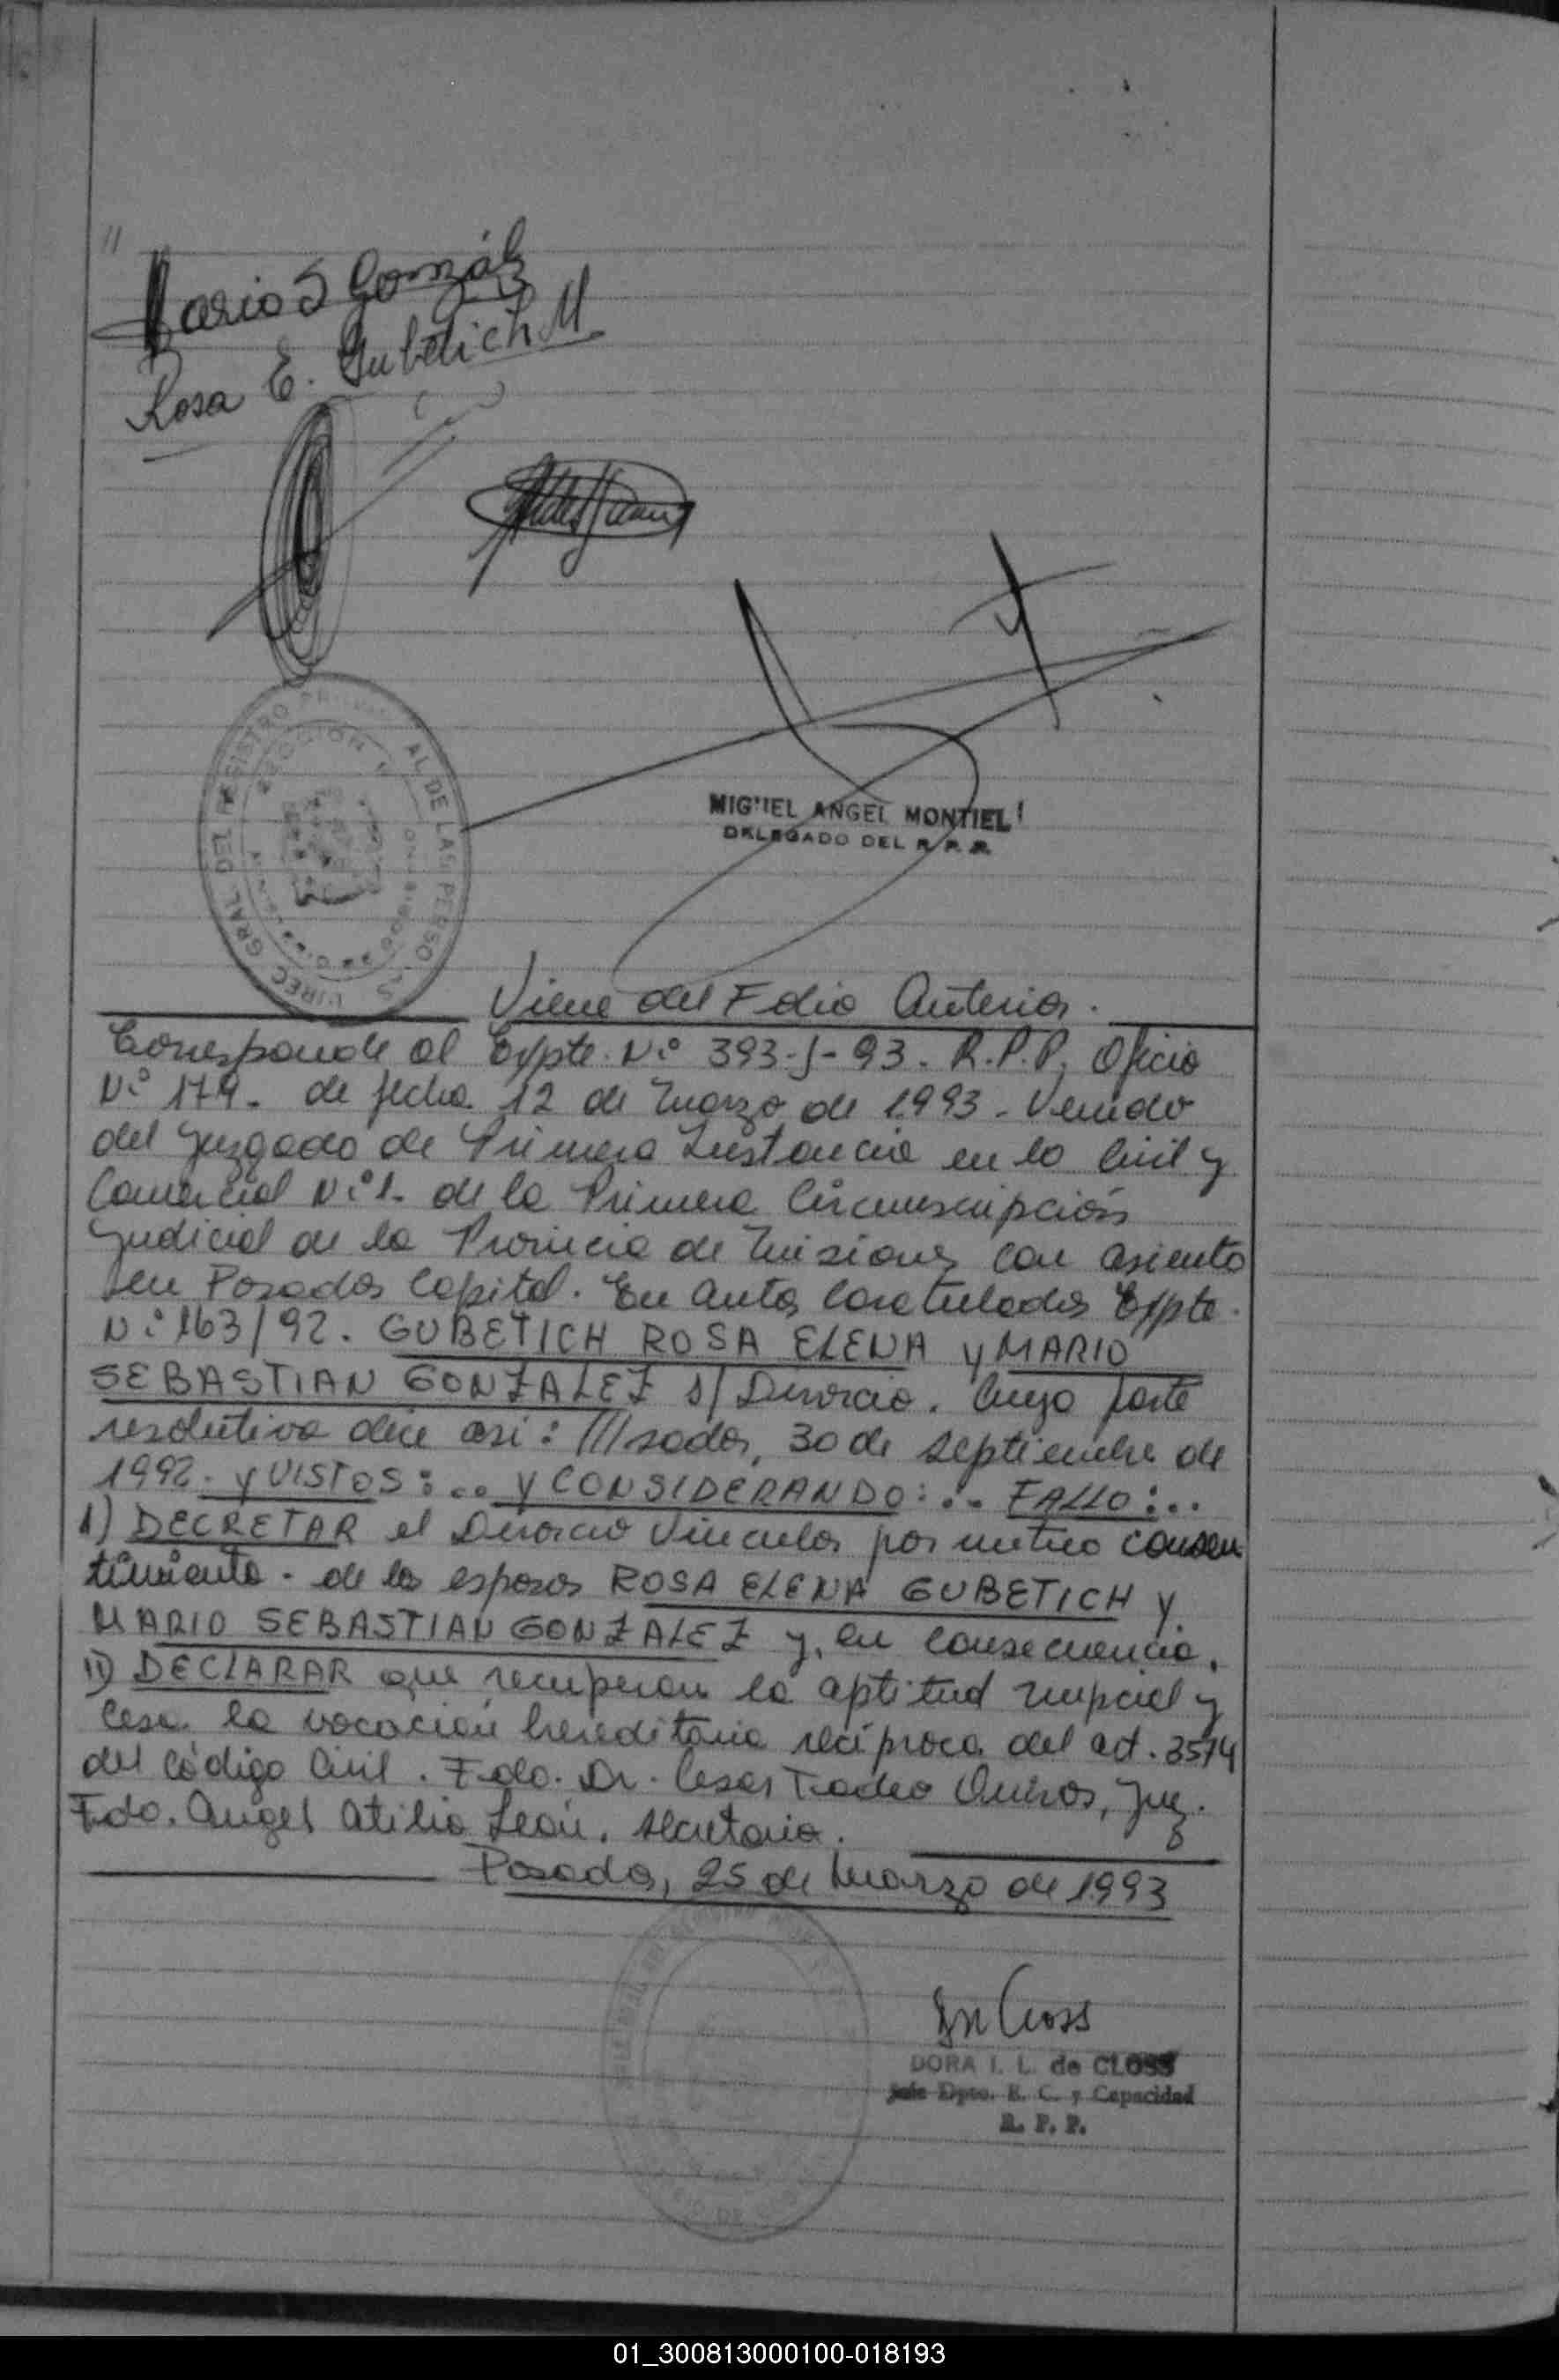 "
Mario S González
Rosa E. Gubetich M
DIREC GRAL DEL REGISTRO AL DE LAS PERSO AS
MIGUEL ANGEL MONTIEL
DELEGADO DEL R. P. P.
Viene del Folio Anterior.
Corresponde al Expte. N:° 393-J-93. R.P.P, Oficio
N:° 179. de fecha 12 de Marzo de 1993. Venido
del Juzgado de Primera Instancia en lo Civil y
Comercial N:° 1. de la Primera Circunscripción
Judicial de la Provincia de Misiones con asiento
en Posadas Capital. En autos caratulados Expte.
N:° 163/92. GUBETICH ROSA ELENA y MARIO
SEBASTIAN GONZALEZ s/ Divorcio. Cuya parte
resolutiva dice asi: ///sadas, 30 de septiembre de
1992. y VISTOS:.. y CONSIDERANDO:.. FALLO:..
I) DECRETAR el Divorcio Vincular por mutuo consen
timiento. de los esposos ROSA ELENA GUBETICH y
MARIO SEBASTIAN GONZALEZ y, en consecuencia,
II) DECLARAR que recuperan la aptitud nupcial y
cesa la vocación hereditaria recíproca del art. 3574
del Código Civil. Fdo. Dr. Cesar Tadeo Quiros, Juez.
Fdo. Angel Atilio León. secretario.
Posadas, 25 de Marzo de 1993
DORA I. L. de CLOSS
Jefe Dpto. E. C. y Capacidad
R. P. P.
01_300813000100-018193